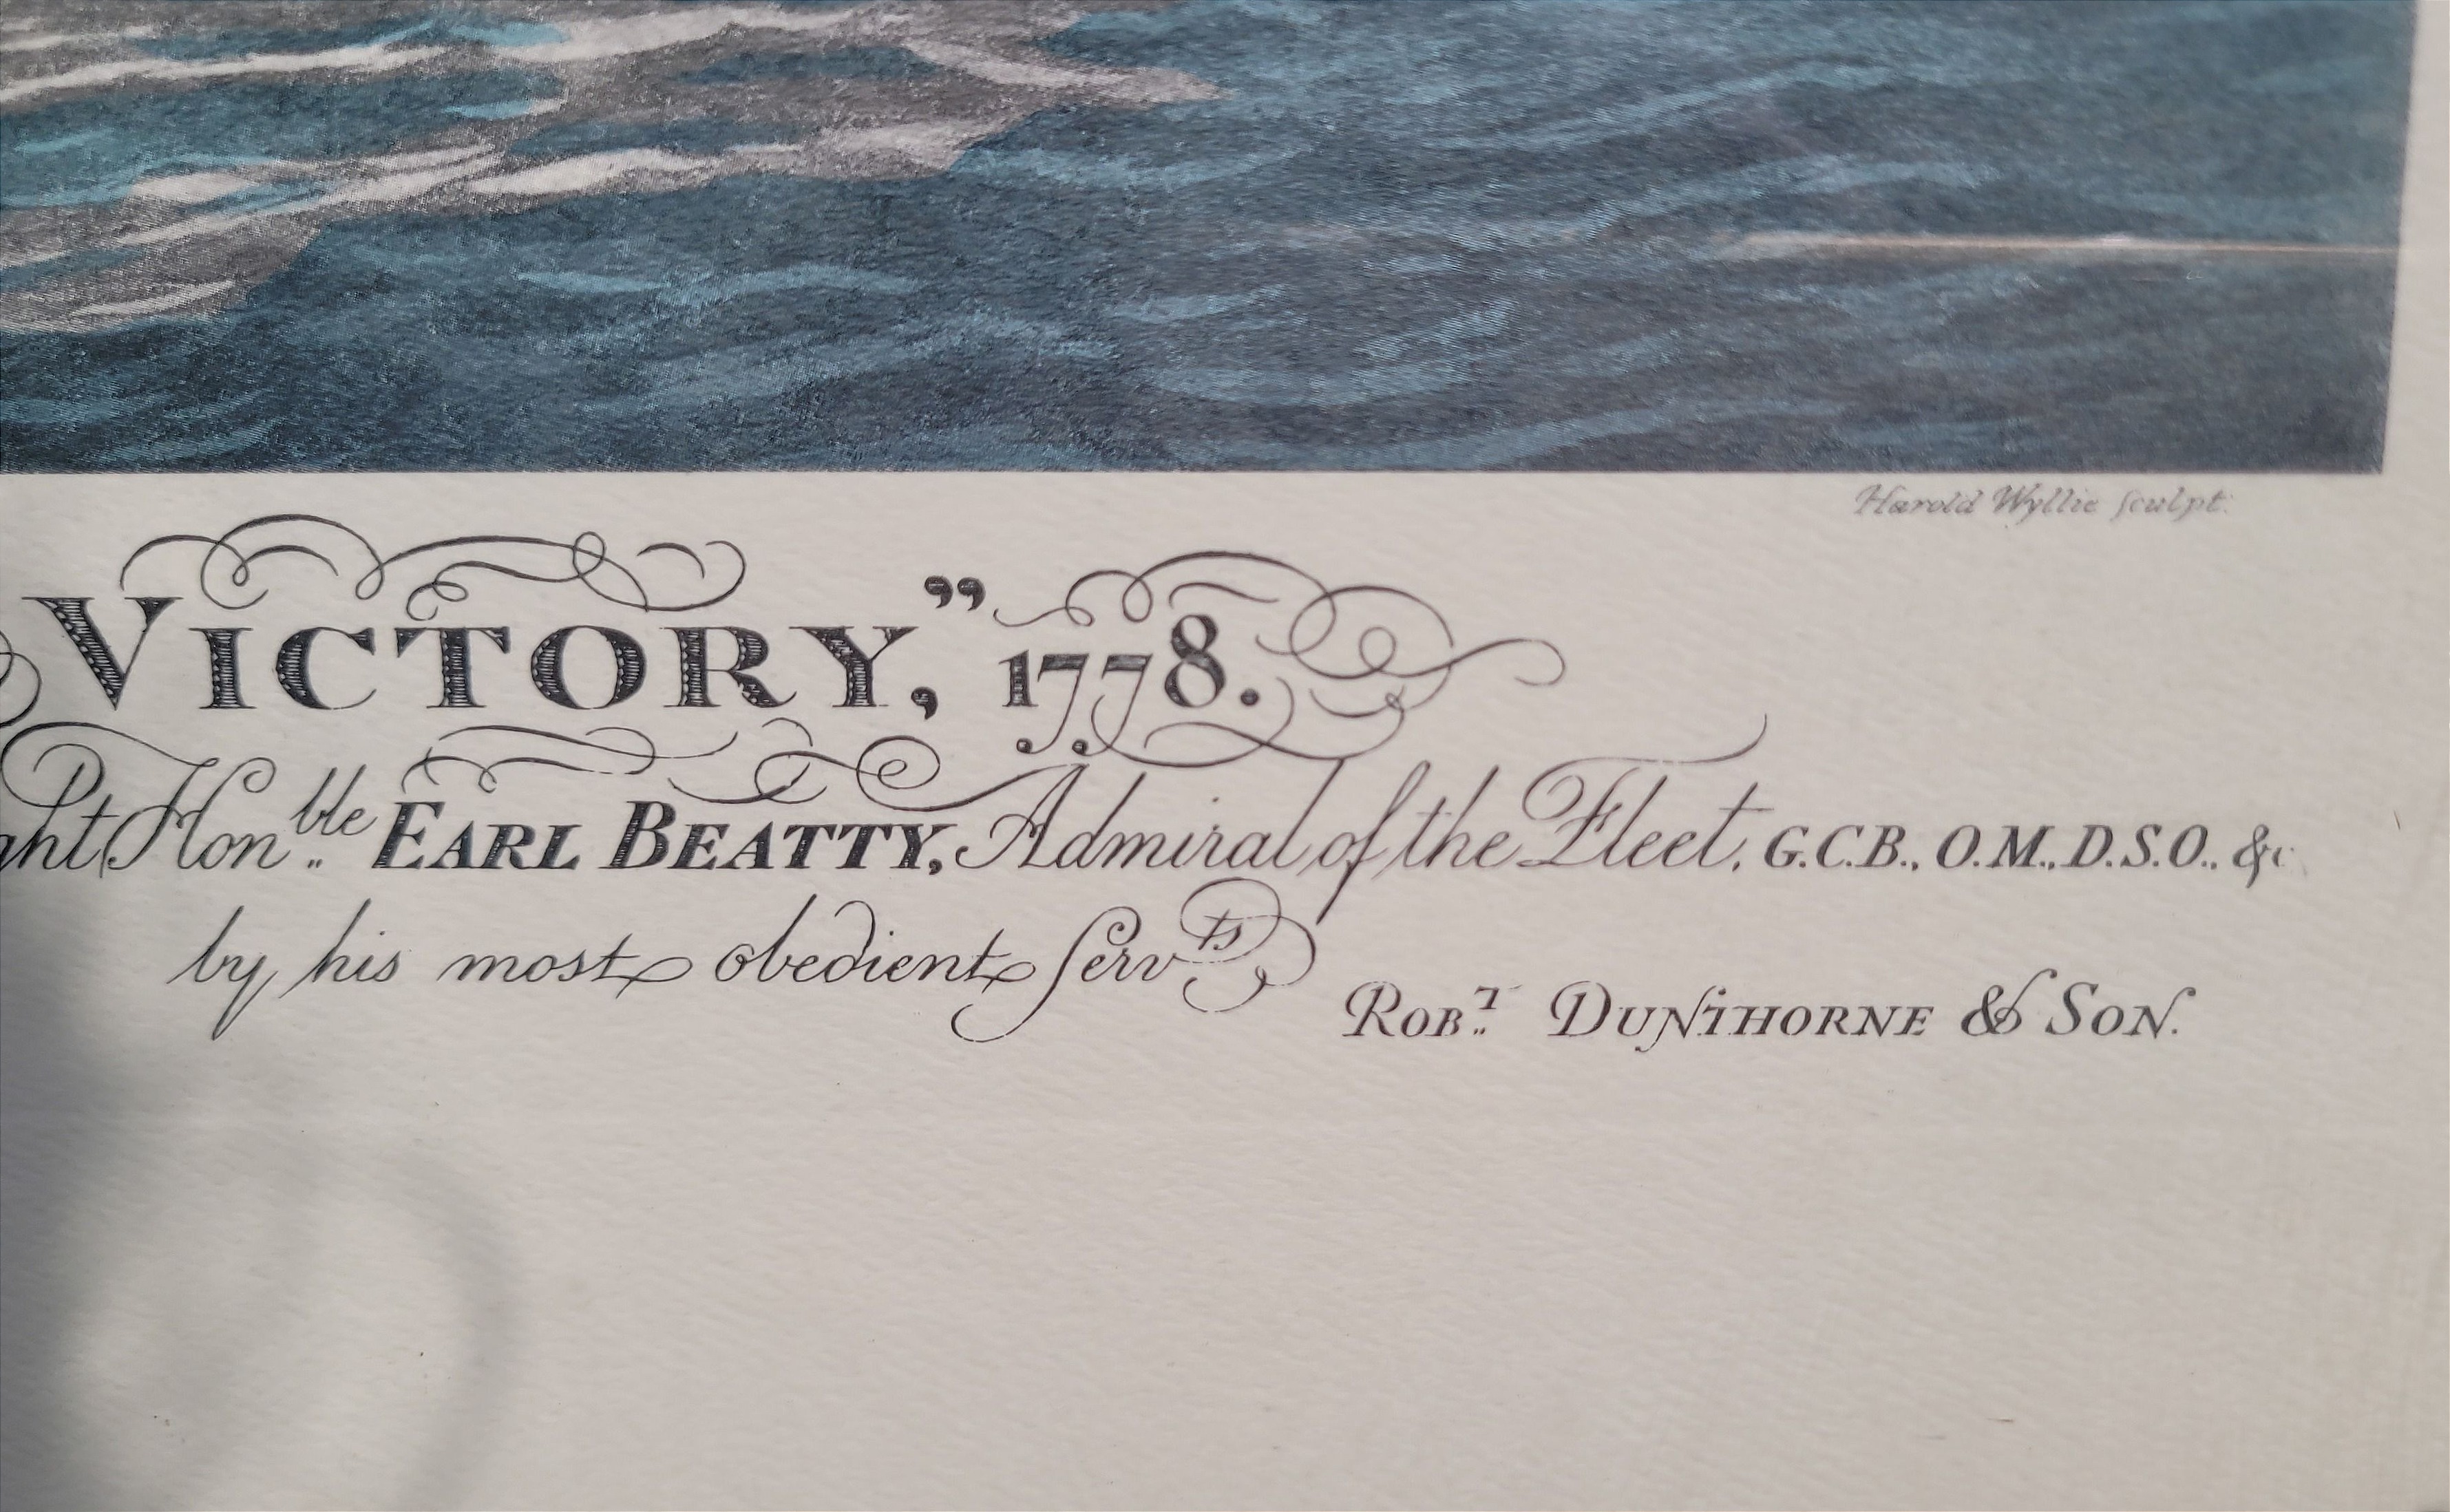 Harold Wyllie sculpt.
VICTORY,” 1778.
Honble EARL BEATTY, Admiral of the Fleet, G.C.B., O.M., D.S.O., &c
by his most obedient Servts
ROBT DUNTHORNE & SON.